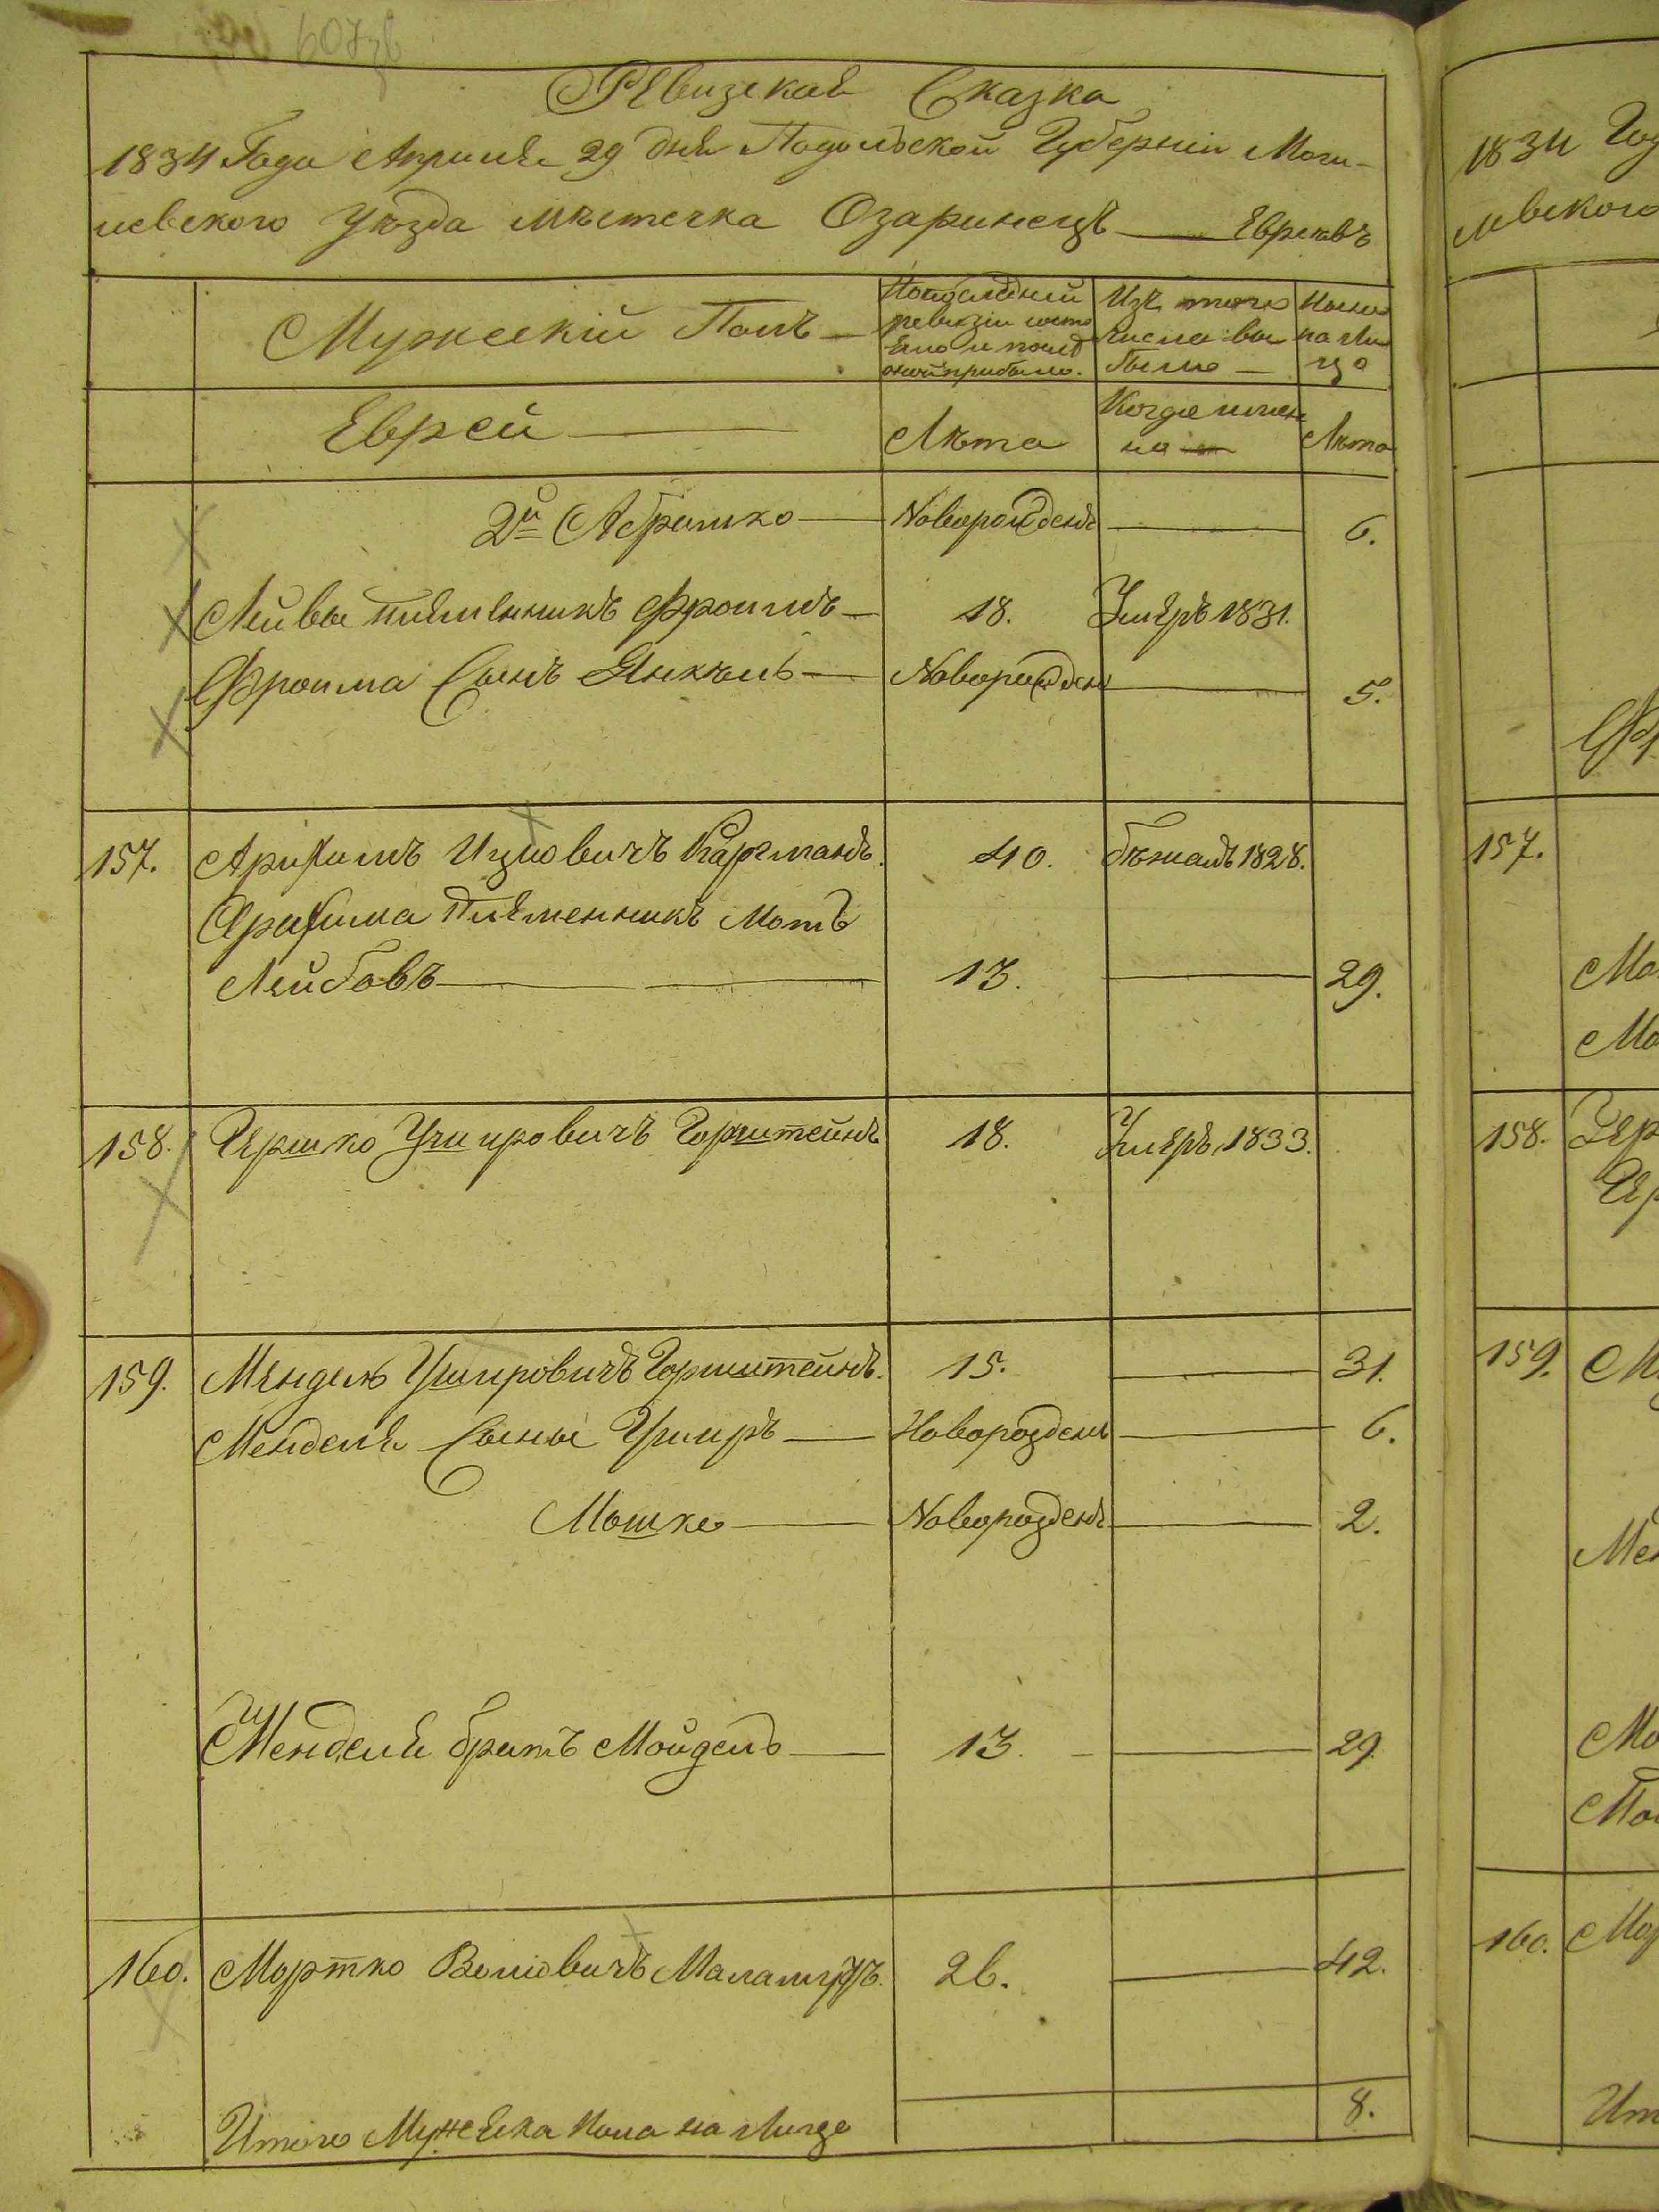 607
Ревизская Сказка
1834 Года Апреля 29 дня Подольской Губернии Моги-
левского Уѣзда мѣстечка Озаринецъ — Евреевъ
Мужескій Полъ —
По последней
ревизіи состо
яло и послѣ
оной прибыло.
Изъ того
числа вы
было —
Ныне
на ли
цо
Еврей —
Лѣта
Когда имен
но
Лѣта
2й Абрамко — Новорожденъ — 6.
Лейбы племянникъ Фроимъ — 18. Умеръ 1831.
Фроима Сынъ Янкель — Новорожден — 5.
157. Арихимъ Ицковичъ Каргманъ. 40. бѣжалъ 1828.
Арихима Племенникъ Мотъ
Лейбовъ — 13. — 29.
158. Гершко Ушировичъ Горштейнъ 18. Умеръ 1833.
159. Мендель Ушировичъ Горштейнъ. 15. — 31.
Менделя Сыны Уширъ — Новорозденъ — 6.
Мошко — Новорозденъ — 2.
Менделя братъ Мойдель — 13. — 29.
160. Мортко Волковичъ Маламудъ. 26. — 42.
Итого Мужеска пола на лицо 8.
1834 Год
левского
157.
Мо
Мо
158. Гер
159. М
Мен
Мо
160. Мор
Ит